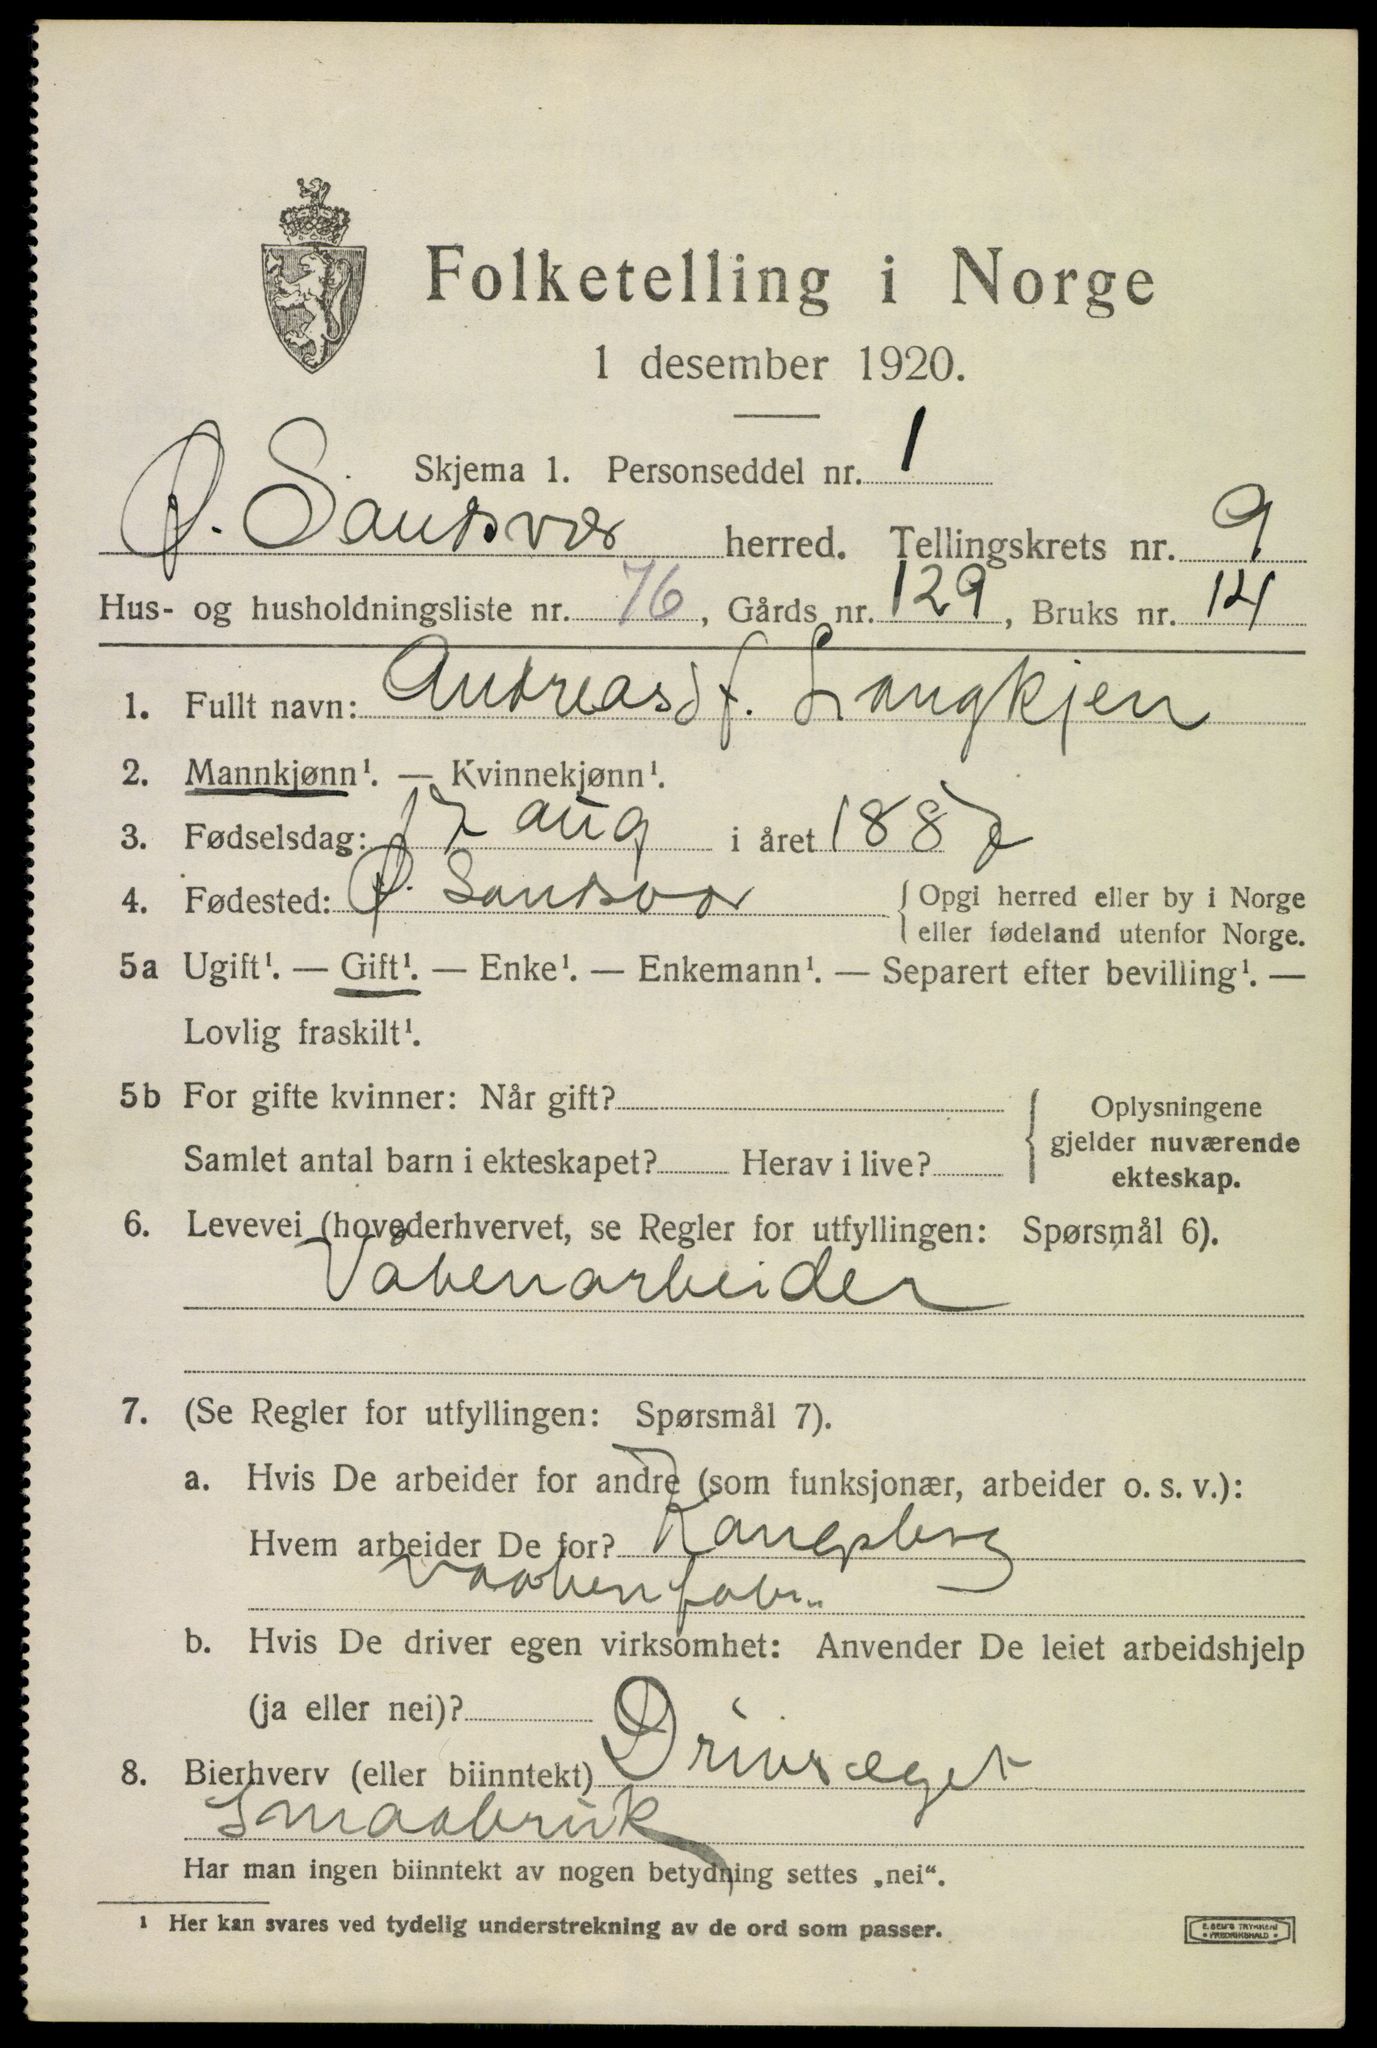 Folketelling i Norge
1 desember 1920.
Skjema 1. Personseddel nr. 1
Ø. Sandsvær herred. Tellingskrets nr. 9
Hus- og husholdningsliste nr. 76, Gårds nr. 129, Bruks nr. 14
1. Fullt navn: Andreas J. Langkjen
2. Mannkjønn¹. — Kvinnekjønn¹.
3. Fødselsdag: 17 aug i året 1887
4. Fødested: Ø. Sandsvær { Opgi herred eller by i Norge
eller fødeland utenfor Norge.
5a Ugift¹. — Gift¹. — Enke¹. — Enkemann¹. — Separert efter bevilling¹. —
Lovlig fraskilt¹.
5b For gifte kvinner: Når gift?
Samlet antal barn i ekteskapet? Herav i live?
{ Oplysningene
gjelder nuværende
ekteskap.
6. Levevei (hovederhvervet, se Regler for utfyllingen: Spørsmål 6).
Våbenarbeider
7. (Se Regler for utfyllingen: Spørsmål 7).
a. Hvis De arbeider for andre (som funksjonær, arbeider o. s. v.):
Hvem arbeider De for? Kongsberg
vaabenfabr.
b. Hvis De driver egen virksomhet: Anvender De leiet arbeidshjelp
(ja eller nei)?
8. Bierhverv (eller biinntekt) Driver eget
Smaabruk
Har man ingen biinntekt av nogen betydning settes „nei“.
¹ Her kan svares ved tydelig understrekning av de ord som passer.
E. SEM'S TRYKKERI
• FREDRIKSHALD •